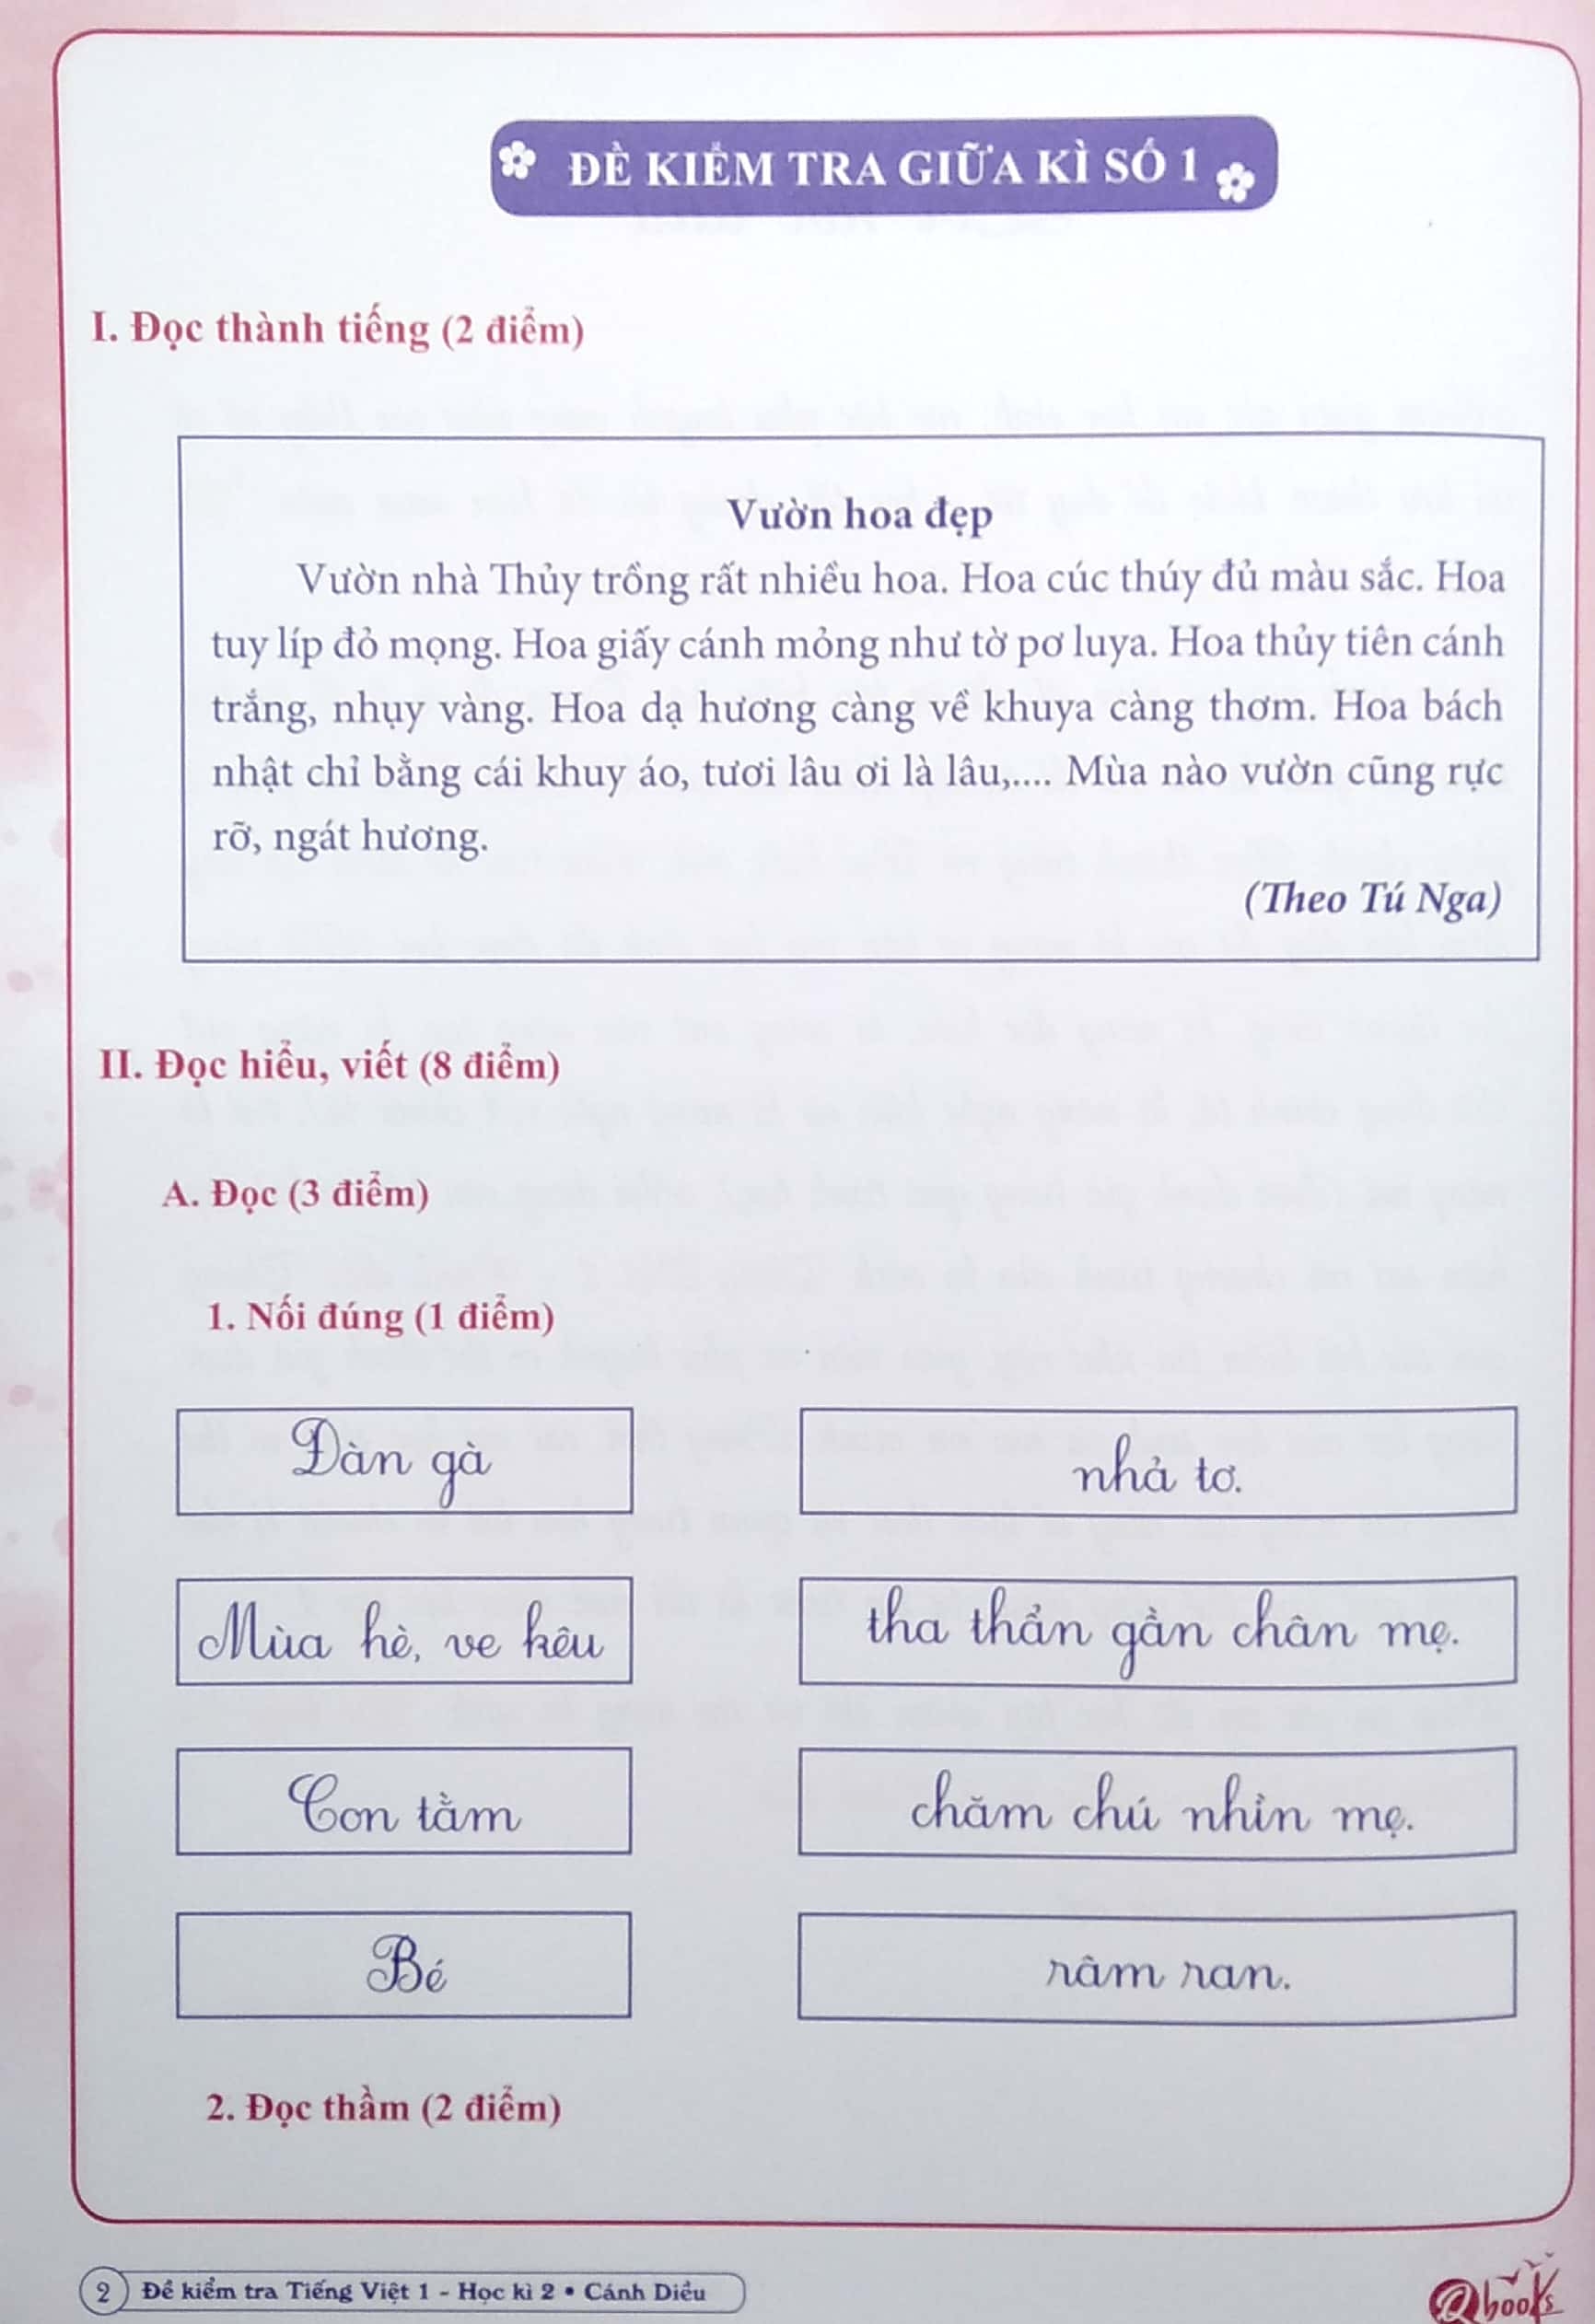 ĐỀ KIỂM TRA GIỮA KÌ SỐ 1
I. Đọc thành tiếng (2 điểm)
Vườn hoa đẹp
Vườn nhà Thủy trồng rất nhiều hoa. Hoa cúc thúy đủ màu sắc. Hoa
tuy líp đỏ mọng. Hoa giấy cánh mỏng như tờ pơ luya. Hoa thủy tiên cánh
trắng, nhụy vàng. Hoa dạ hương càng về khuya càng thơm. Hoa bách
nhật chỉ bằng cái khuy áo, tươi lâu ơi là lâu,.... Mùa nào vườn cũng rực
rỡ, ngát hương.
(Theo Tú Nga)
II. Đọc hiểu, viết (8 điểm)
A. Đọc (3 điểm)
1. Nối đúng (1 điểm)
Đàn gà
nhả tơ.
Mùa hè, ve kêu
tha thẩn gần chân mẹ.
Con tằm
chăm chú nhìn mẹ.
Bé
râm ran.
2. Đọc thầm (2 điểm)
2 Đề kiểm tra Tiếng Việt 1 - Học kì 2 • Cánh Diều
Qbooks